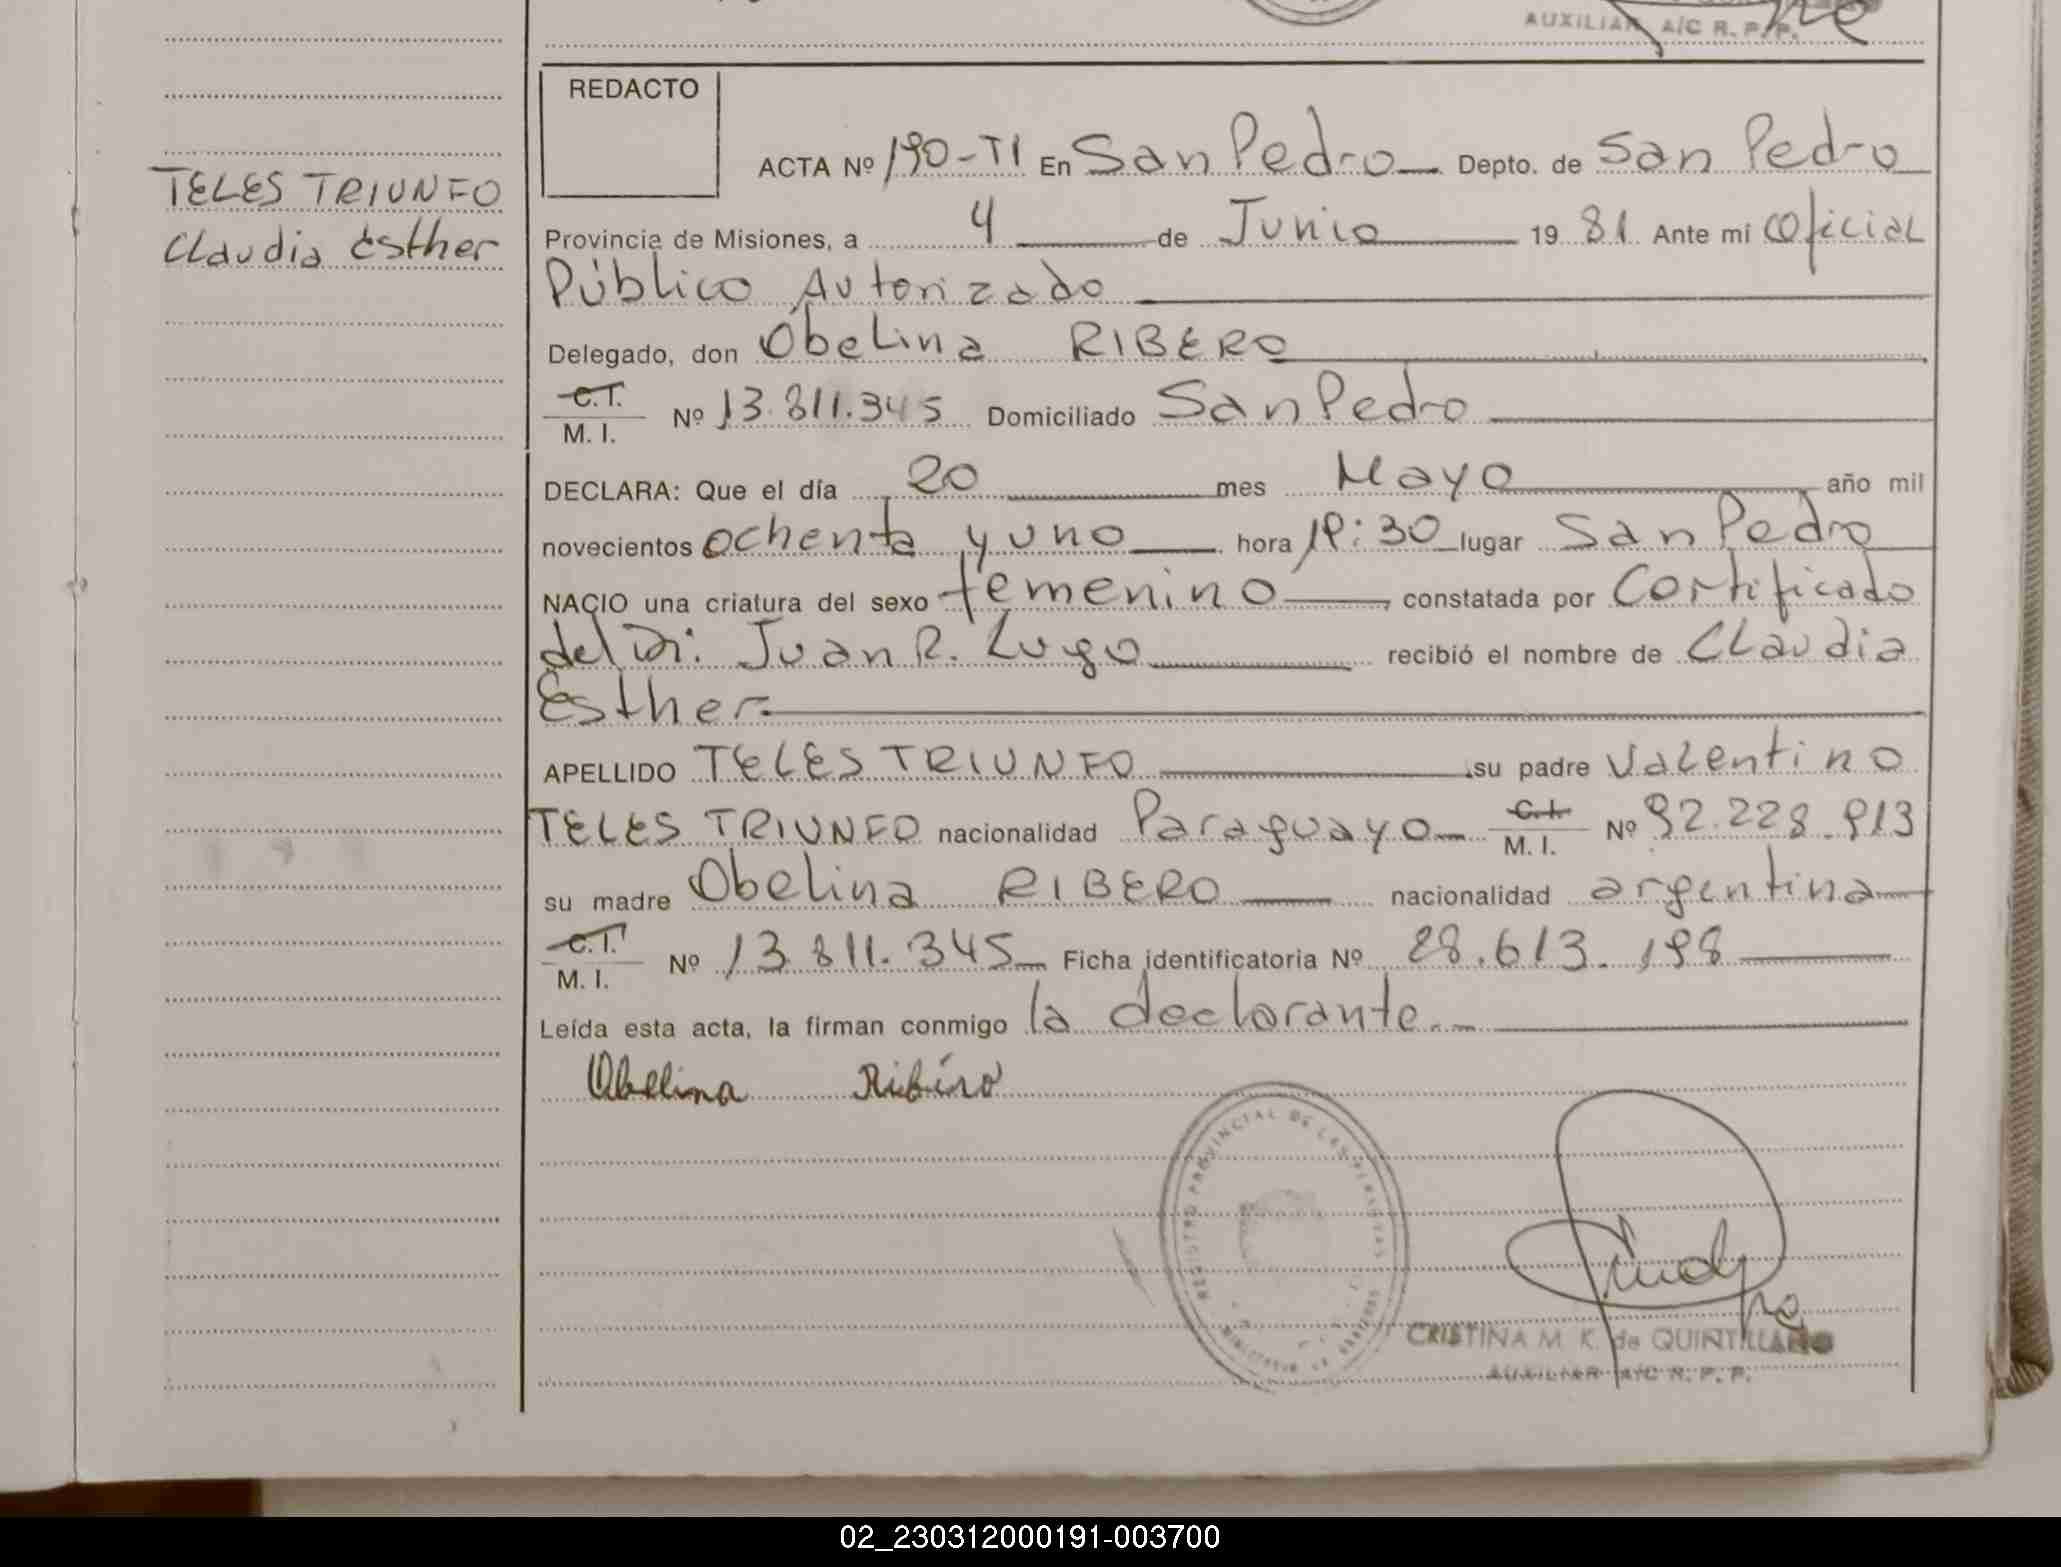 AUXILIAR A/C R. P. P.
REDACTO
ACTA Nº 190-TI En San Pedro Depto. de San Pedro
TELES TRIUNFO
Claudia Esther
Provincia de Misiones, a 4 de Junio 1981 Ante mi Oficial
Público Autorizado
Delegado, don Obelina RIBERO
C.I.
M. I. Nº 13.811.345 Domiciliado San Pedro
DECLARA: Que el día 20 mes Mayo año mil
novecientos ochenta y uno hora 19:30 lugar San Pedro
NACIO una criatura del sexo femenino, constatada por Certificado
del Dr. Juan R. Lugo recibió el nombre de Claudia
Esther.
APELLIDO TELES TRIUNFO su padre Valentino
TELES TRIUNFO nacionalidad Paraguayo C.I. M. I. Nº 92.228.913
su madre Obelina RIBERO nacionalidad argentina
C.I.
M. I. Nº 13.811.345 Ficha identificatoria Nº 28.613.198
Leída esta acta, la firman conmigo la declarante.
Obelina Ribero
REGISTRO PROVINCIAL DE LAS PERSONAS
CRISTINA M. K. de QUINTILLANO
AUXILIAR A/C R. P. P.
02_230312000191-003700